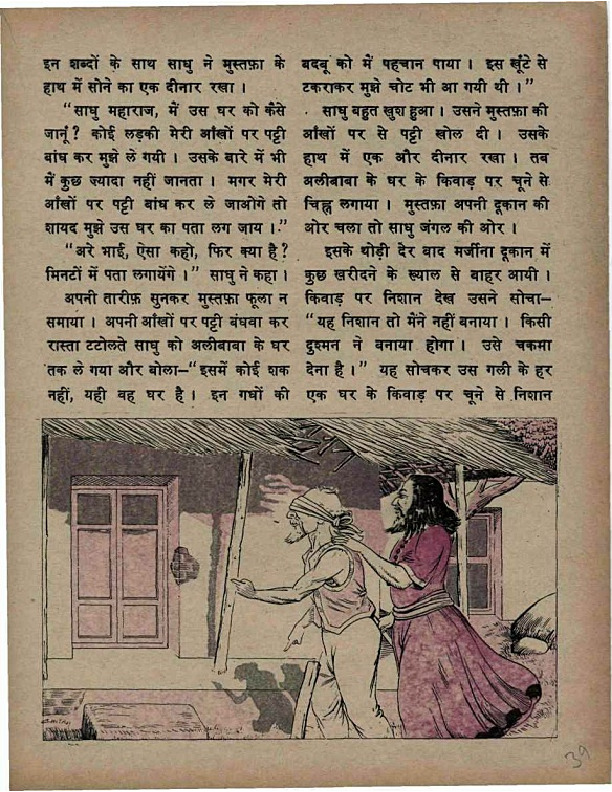 इन शब्दों के साथ साधु ने मुस्तफ़ा के
हाथ में सोने का एक दीनार रखा ।
“साधु महाराज, मैं उस घर को कैसे
जानूँ ? कोई लड़की मेरी आँखों पर पट्टी
बांध कर मुझे ले गयी । उसके बारे में भी
मैं कुछ ज्यादा नहीं जानता । मगर मेरी
आँखों पर पट्टी बांध कर ले जाओगे तो
शायद मुझे उस घर का पता लग जाय ।”
“अरे भाई, ऐसा कहो, फिर क्या है ?
मिनटों में पता लगायेंगे ।” साधु ने कहा ।
अपनी तारीफ़ सुनकर मुस्तफ़ा फूला न
समाया । अपनी आँखों पर पट्टी बंधवा कर
रास्ता टटोलते साधु को अलीबाबा के घर
तक ले गया और बोला–“इसमें कोई शक
नहीं, यही वह घर है । इन गधों की
बदबू को मैं पहचान पाया । इस खूँटे से
टकराकर मुझे चोट भी आ गयी थी ।”
साधु बहुत खुश हुआ । उसने मुस्तफ़ा की
आँखों पर से पट्टी खोल दी । उसके
हाथ में एक और दीनार रखा । तब
अलीबाबा के घर के किवाड़ पर चूने से
चिह्न लगाया । मुस्तफ़ा अपनी दूकान की
ओर चला तो साधु जंगल की ओर ।
इसके थोड़ी देर बाद मर्जीना दूकान में
कुछ खरीदने के ख्याल से बाहर आयी ।
किवाड़ पर निशान देख उसने सोचा–
“यह निशान तो मैंने नहीं बनाया । किसी
दुश्मन ने बनाया होगा । उसे चकमा
देना है ।” यह सोचकर उस गली के हर
एक घर के किवाड़ पर चूने से निशान
39